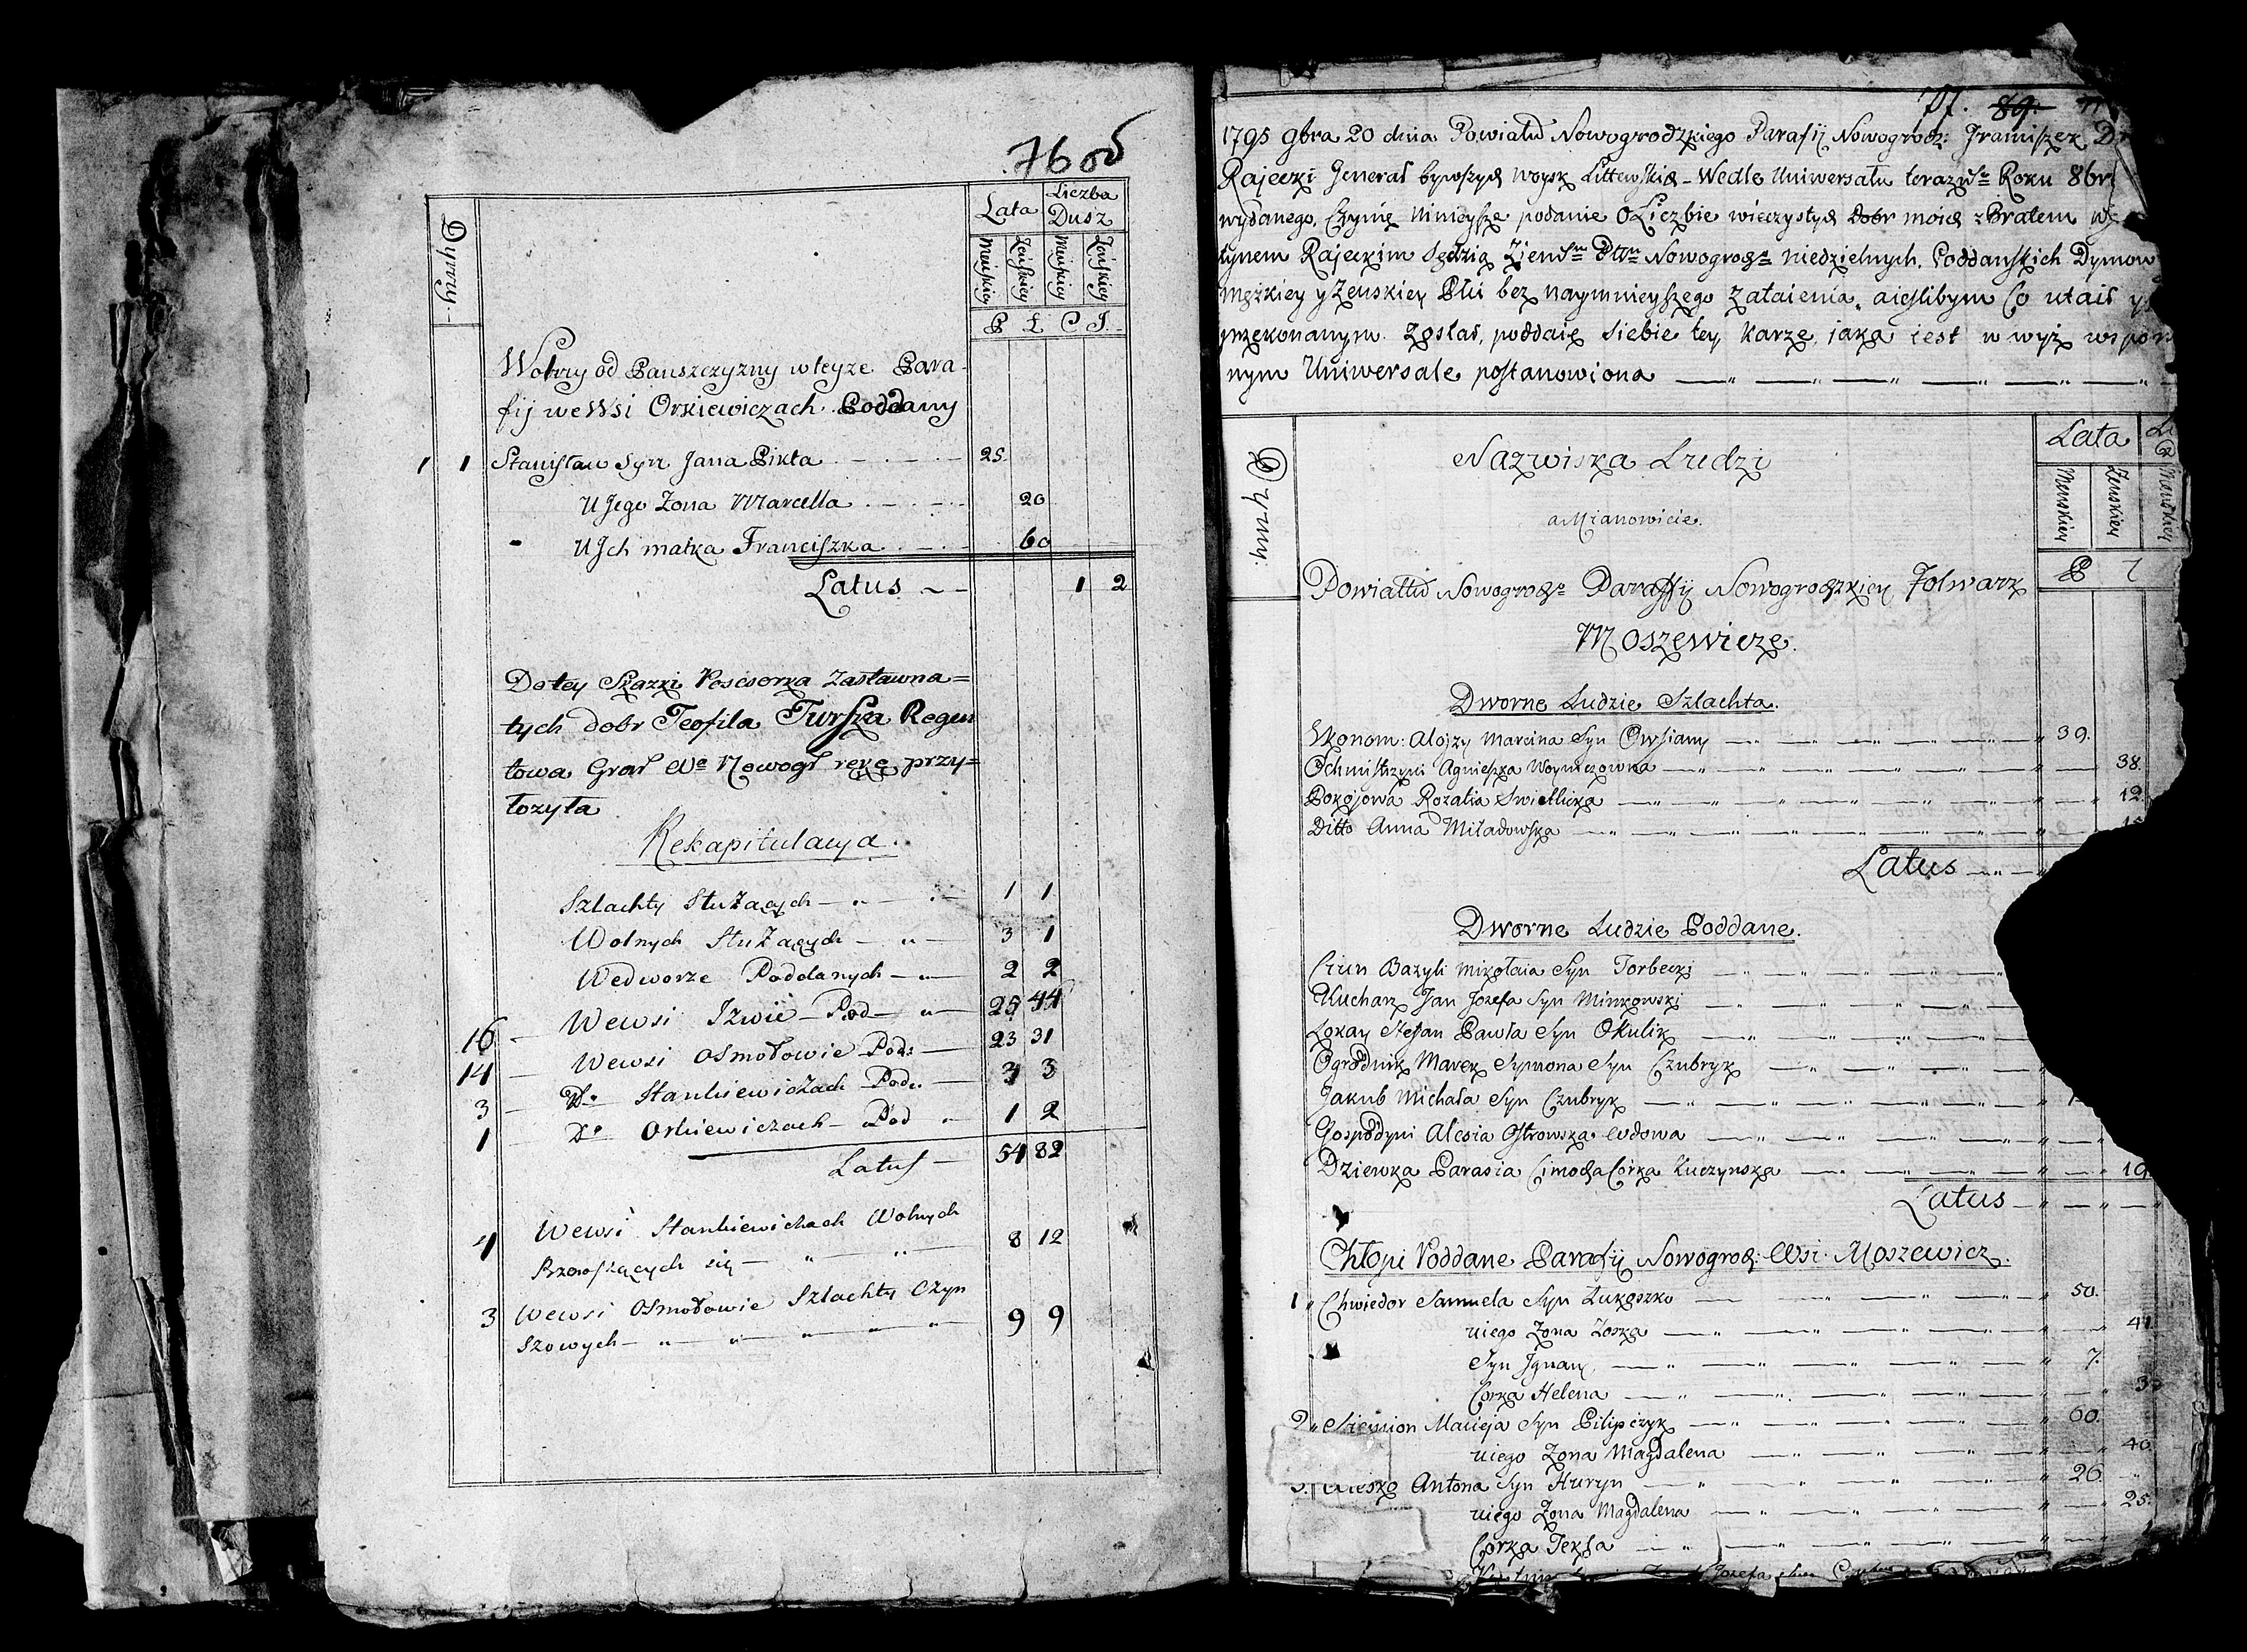 76 об
Dymy
Lata
Liczba Dusz
Męskiey
Żeńskiey
Męskiey
Żeńskiey
P Ł C J.
Wolny od Pauszczyzny wteyze Para
fij weWsi Orkiewiczach Poddany
1 1 Stanisław Syn Jana Pikta 25.
UJego Zona Marcella 20
UJch matka Franciszka 60
Latus 1 2
Do tey Skazki Possesorka Zastawna=
tych dobr Teofila Turska Regen
towa Grod Wa Nowogr rękę przy=
łozyła
Rekapitulacya.
Szlachty Służących 1 1
Wolnych Służących 3 1
Wedworze Poddanych 2 2
16 Wewsi Izwie Pod 25 44
14 Wewsi Osmołowie Pod: 23 31
3 Do Stankiewiczach Pod. 3
1 Do Orkiewiczach Pod 1 2
Latus 54 82
4 Wewsi Stankiewichach Wolnych 8 12
się
3 Wewsi Osmołowie Szlachty Czyn
szowych 9 9
77. 89.
1795 9bra 20 dnia Powiatu Nowogrodzkiego Parafij Nowogrodz: Franiszek
Rajecki Generał bywszych Woysk Littewskich Wedle Uniwersału Roku 8br
wydanego, Czynię ninieysze podanie OLiczbie wieczystych Dobr moich zBratem
tynem Rajeckim Sędzią Ziem Nowogrodz niedzielnych. Poddanskich Dymow
męzkiey y Zenskiey Płci bez naymnieyszego Zataienia, aieslibym Co utaił y
przekonanym Został, poddaię Siebie tey karze, jaka iest w wyż wspom
nym Uniwersale postanowiona
Dymy.
Nazwiska Ludzi
aMianowicie.
Lata
Menskiey
Zenskiey
Menskiey
P
Powiattu Nowogrodz Paraffij Nowogrodzkiey Folwark
Moszewicze.
Dworne Ludzie Szlachta.
Ekonom: Alojzy Marcina Syn Owsiany 39.
Ochmistrzyni Agnieszka Woyniczowna 38.
Pokojowa Rozalia Swietlicka 12.
Ditto Anna Miładowska
Latus
Dworne Ludzie Poddane.
Ciun Bazyli Mikołaia Syn Torbecki
Kucharz Jan Jozefa Syn Minkowski
Lokay Stefan Pawła Syn Okulik
Ogrodnik Marek Symona Syn Czubryk
Jakub Michała Syn Czubryk
Gospodyni Alesia Ostrowska Wdowa
Dziewka Parasia Cimocha Córka Kuczynska 19
Latus
Chłopi Poddane Parafij Nowogrodz: Wsi Moszewicz.
1 Chwiedor Samuela Syn Łukoszko 50.
niego Zona Zoska
Syn Jgnacy 7.
Corka Helena
2 Siemion Macieja Syn Pilipczyk 60.
niego Zona Magdalena 40.
3. Antona Syn Huryn 26
niego Zona Magdalena 25.
Córka Tekla
Jozefa